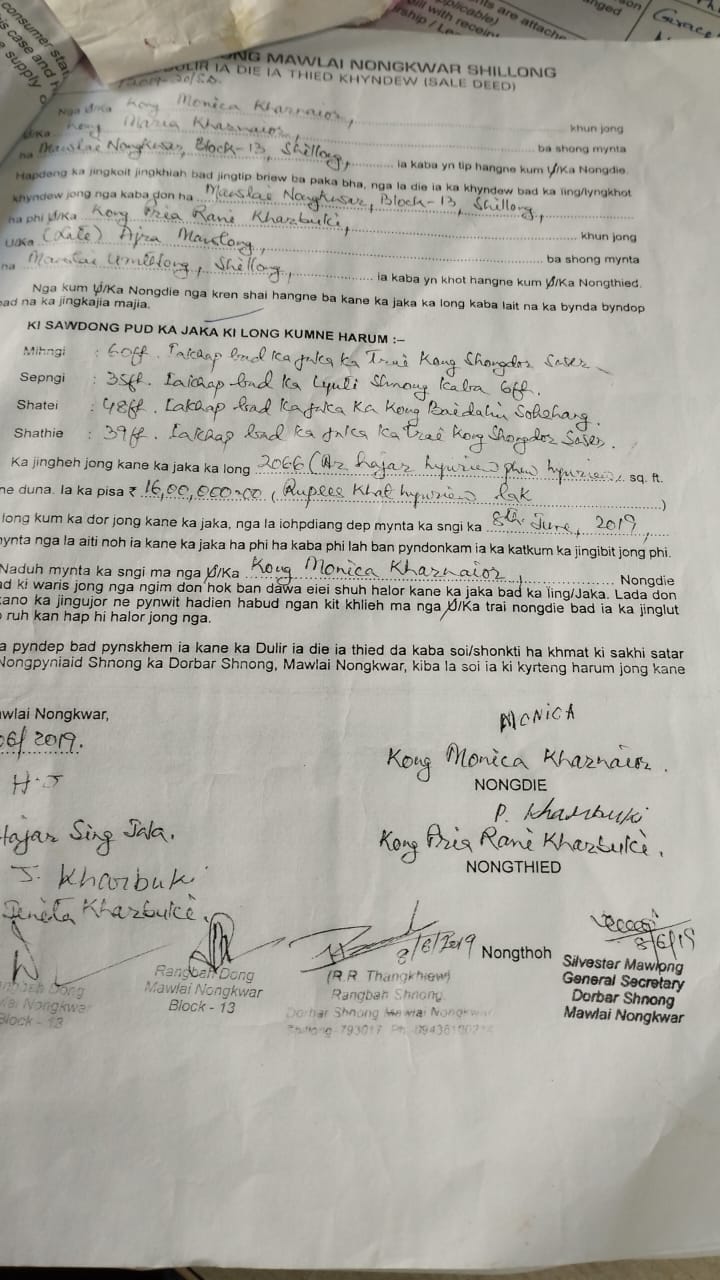 consumer sta
is case and h
supply o
nts are attache
plicable)
ill with receip
ship / L
nged
son
Grace
ONG MAWLAI NONGKWAR SHILLONG
DULIR IA DIE IA THIED KHYNDEW (SALE DEED)
Nga U/Ka Kong Monica Kharnaior, khun jong
U/Ka Kong Maria Kharnaior, ba shong mynta
na Mawlai Nongkwar, Block-13, Shillong, ia kaba yn tip hangne kum U/Ka Nongdie.
Hapdeng ka jingkoit jingkhiah bad jingtip briew ba paka bha, nga la die ia ka khyndew bad ka ling/lyngkhot
khyndew jong nga kaba don ha Mawlai Nongkwar, Block-13, Shillong,
ha phi U/Ka Kong Pria Rani Kharbuki, khun jong
U/Ka (Late) Ajra Mawlong, ba shong mynta
na Mawlai Umitlong, Shillong, ia kaba yn khot hangne kum U/Ka Nongthied.
Nga kum U/Ka Nongdie nga kren shai hangne ba kane ka jaka ka long kaba lait na ka bynda byndop
bad na ka jingkajia majia.
KI SAWDONG PUD KA JAKA KI LONG KUMNE HARUM :–
Mihngi : 60ff. Iakhap bad ka jaka ka Trai Kong Shongdor Saser
Sepngi : 35ff. Iakhap bad ka Lynti Shnong kaba 6ff.
Shatei : 48ff. Iakhap bad ka jaka Ka Kong Baidalin Sohshang.
Shathie : 39ff. Iakhap bad ka jaka ka trai Kong Shongdor Saser.
Ka jingheh jong kane ka jaka ka long 2066 (Ar hajar hynriew phew hynriew) sq. ft.
ne duna. Ia ka pisa ₹ 16,00,000=00 (Rupees Khat hynriew lak)
long kum ka dor jong kane ka jaka, nga la iohpdiang dep mynta ka sngi ka 8th June, 2019,
ynta nga la aiti noh ia kane ka jaka ha phi ha kaba phi lah ban pyndonkam ia ka katkum ka jingibit jong phi.
Naduh mynta ka sngi ma nga U/Ka Kong Monica Kharnaior, Nongdie
ad ki waris jong nga ngim don hok ban dawa eiei shuh halor kane ka jaka bad ka ling/Jaka. Lada don
kano ka jingujor ne pynwit hadien habud ngan kit khlieh ma nga U/Ka trai nongdie bad ia ka jinglut
ruh kan hap hi halor jong nga.
a pyndep bad pynskhem ia kane ka Dulir ia die ia thied da kaba soi/shonkti ha khmat ki sakhi satar
Nongpyniaid Shnong ka Dorbar Shnong, Mawlai Nongkwar, kiba la soi ia ki kyrteng harum jong kane
awlai Nongkwar,
06/2019.
H.J
Hajar Sing Jala.
J. Kharbuki
Jenita Kharbuki.
MONICA
Kong Monica Kharnaior.
NONGDIE
P. Kharbuki
Kong Pria Rani Kharbuki.
NONGTHIED
Rangbah Dong
Mawlai Nongkwar
Block - 13
Rangbah Dong
Mawlai Nongkwar
Block - 13
8/6/2019
(R.R. Thangkhiew)
Rangbah Shnong
Dorbar Shnong Mawlai Nongkwar
Shillong-793017
Nongthoh
8/6/19
Silvester Mawlong
General Secretary
Dorbar Shnong
Mawlai Nongkwar